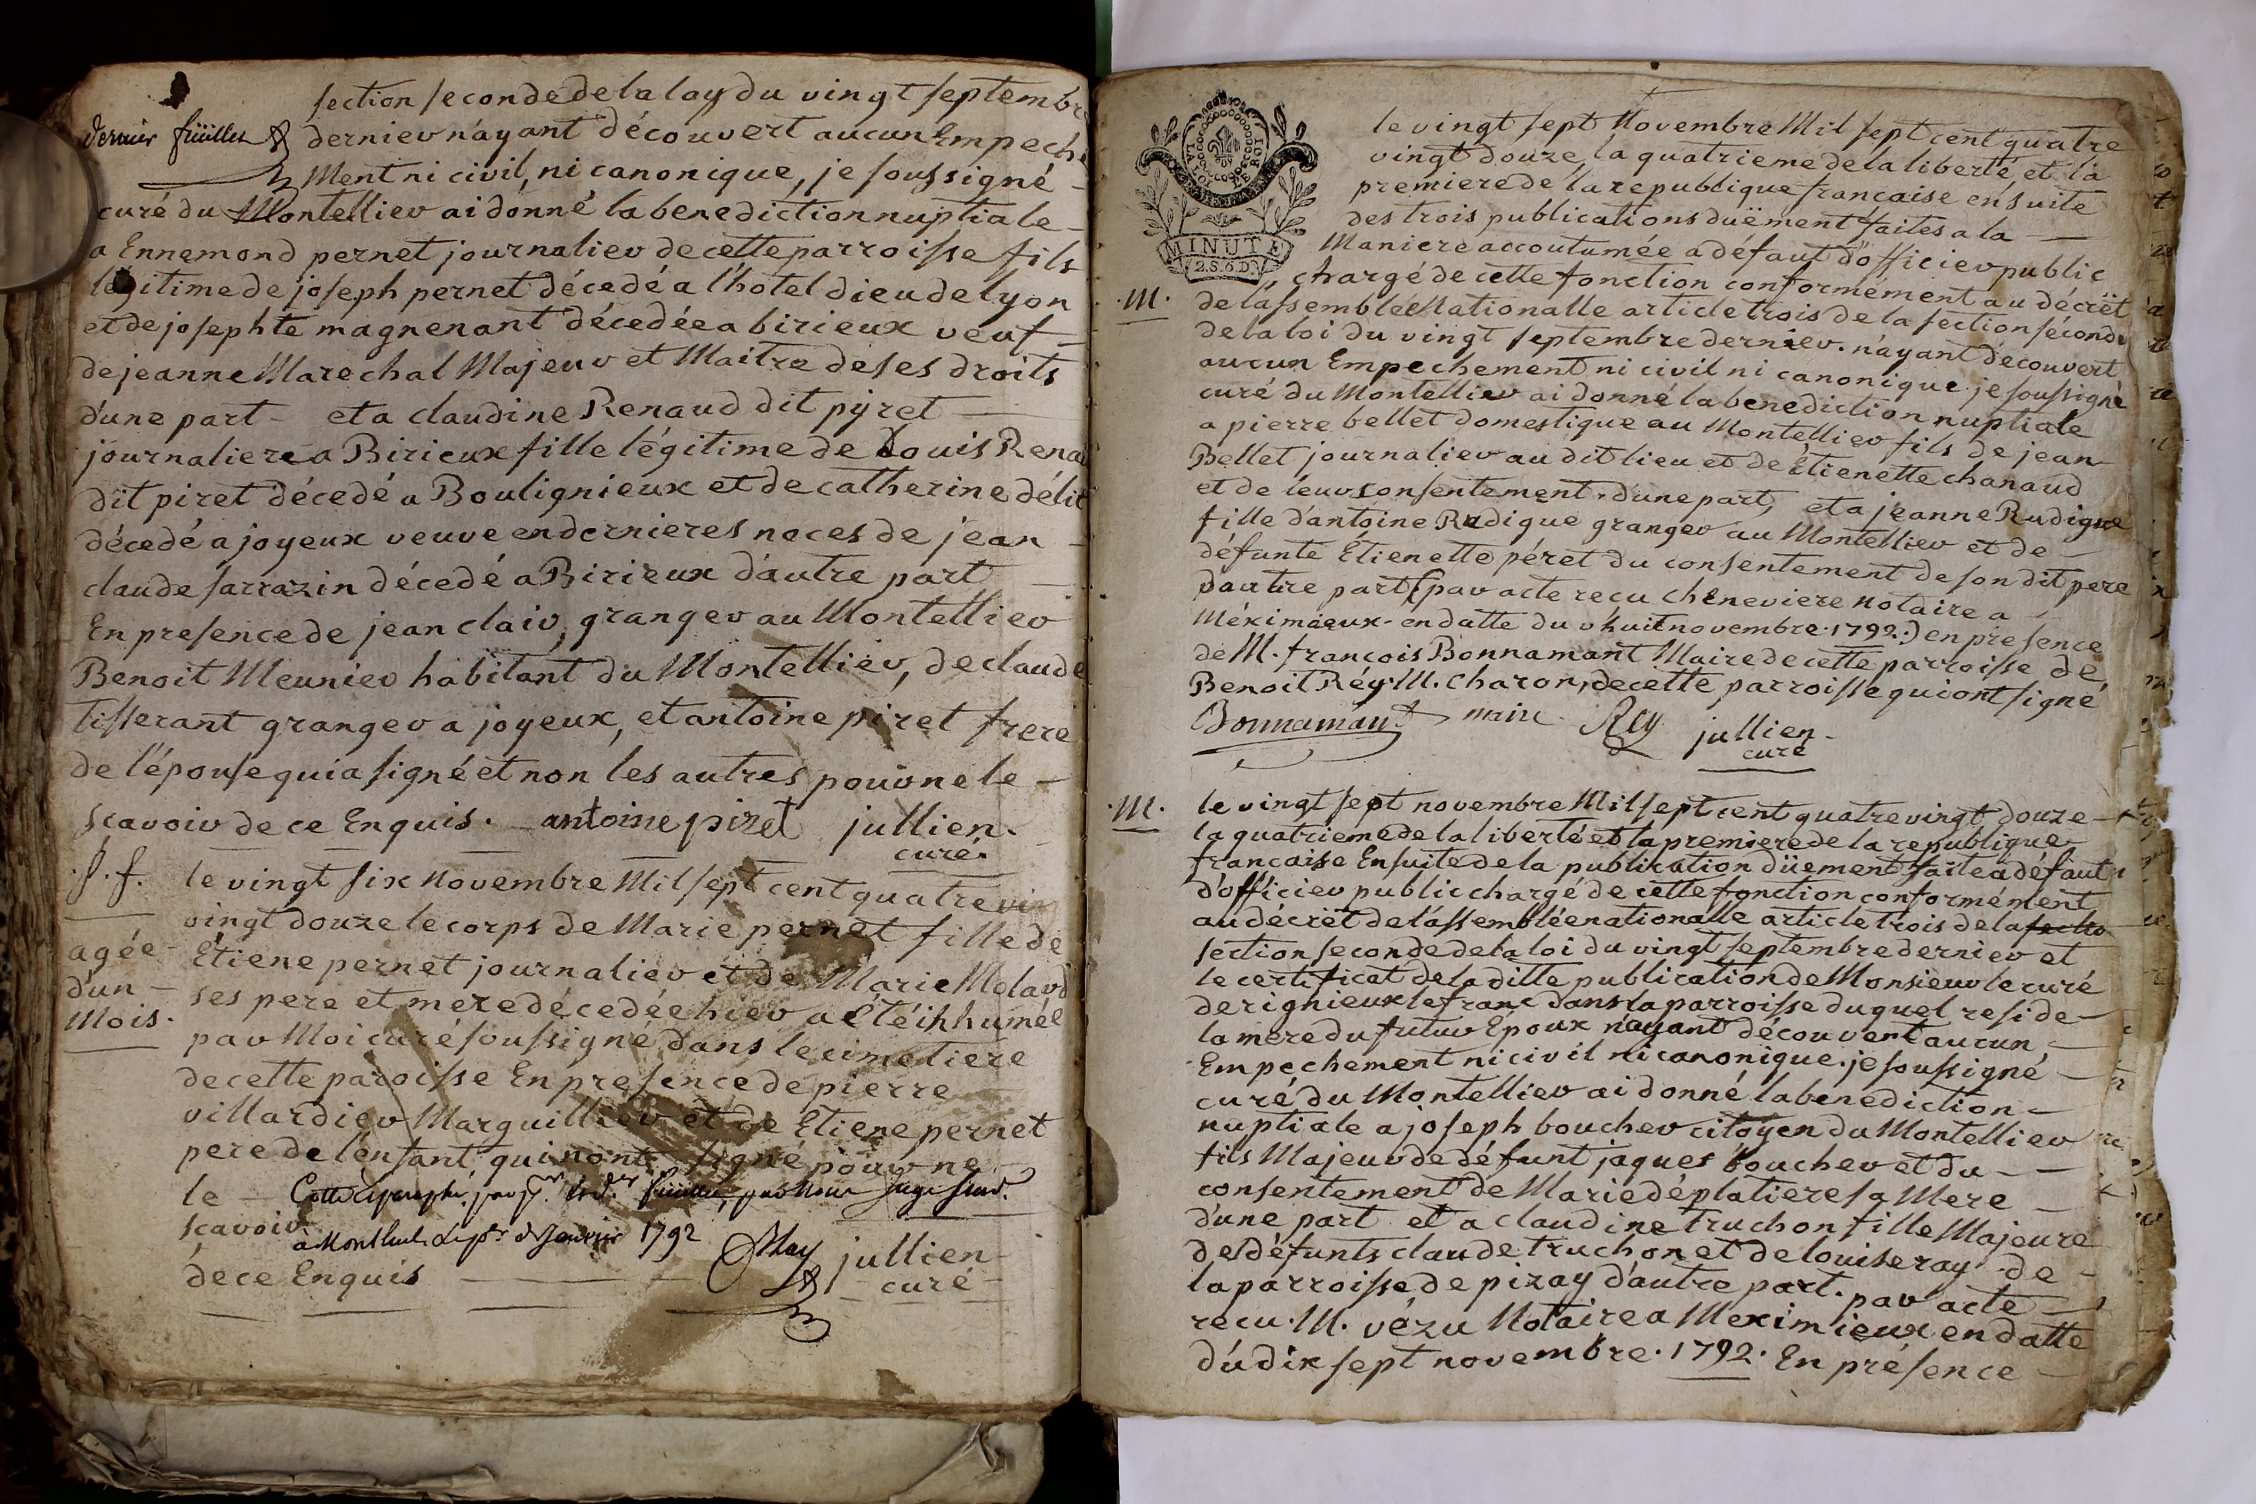 section seconde de la loy du vingt septembre
dernier feüillet dernier n'ayant découvert aucun Empeche
Ment ni civil, ni canonique, je soussigné -
curé du Montellier ai donné la benediction nuptiale -
a Ennemond pernet journalier de cette parroisse fils
légitime de joseph pernet décedé a l'hotel dieu de lyon
et de josephte magnenant décedée a birieux veuf -
de jeanne Marechal Majeur et Maitre de ses droits
d'une part - et a claudine Renaud dit pÿret -
journaliere a Birieux fille légitime de Louis Rena
dit piret décedé a Boulignieux et de catherine délit
décedé a joyeux veuve en dernieres noces de jean -
claude sarrazin décedé a Birieux d'autre part -
En presence de jean clair, granger au Montellier
Benoit Meunier habitant du Montellier, de claude
tisserant granger a joyeux, et antoine piret frere
de l'épouse qui a signé et non les autres pour ne le -
scavoir de ce Enquis. antoine piret jullien.
curé.
.S.f. le vingt six Novembre Mil sept cent quatre vin
vingt douze le corps de Marie pernet fille de
agée Étiene pernet journalier et de Marie Molard
d'un - ses pere et mere décedée hier a été inhumée
Mois. par Moi curé soussigné dans le cimetiere
de cette paroisse En presence de pierre
villardier Marguillier et de Étiene pernet
pere de l'enfant qui n'ont signé pour ne
le Cotté et paraphé par
scavoir
à Montluel le janvier 1792
May jullien
de ce Enquis curé
LA LOI LE ROI
MINUTE
2.S.6.D
le vingt sept Novembre Mil sept cent quatre
vingt douze, la quatrieme de la liberté et la
premiere de la republique francaise ensuite
des trois publications duëment faites a la -
Maniere accoutumée a défaut d'officier public
chargé de cette fonction conformément au décrët
.M. de l'assemblée Nationalle article trois de la section séconde
de la loi du vingt septembre dernier. n'ayant découvert
aucun Empechement ni civil ni canonique. je soussigné
curé du Montellier ai donné la benediction nuptiale
a pierre bellet domestique au Montellier fils de jean
Bellet journalier au dit lieu et de Étienette chanaud
et de leur consentement. d'une part, et a jeanne Rudigue
fille d'antoine Rudigue granger au Montellier et de -
défunte Étienette péret du consentement de son dit pere
d'autre part (par acte recu cheneviere Notaire a
Méximieux. en datte du huit novembre. 1792.) en presence
de M. francois Bonnamant Maire de cette parroisse de,
Benoit Réy. M. charon, de cette parroisse qui ont signé
Bonnamant maire. Rey jullien.
curé
.M. le vingt sept novembre Mil sept cent quatre vingt douze -
la quatrieme de la liberté et la premiere de la republique
francaise Ensuite de la publication düement faite a défaut
d'officier public chargé de cette fonction conformément
au décrët de l'assemblée nationalle article trois de la sectio
section seconde de la loi du vingt septembre dernier et
le certificat de la ditte publication de Monsieur le curé
de rignieux le franc dans la parroisse du quel reside -
la mere du futur Époux n'ayant découvert aucun -
Empechement ni civil ni canonique. je soussigné -
curé du Montellier ai donné la benediction -
nuptiale a joseph boucher citoyen du Montellier
fils Majeur de défunt jaques boucher et du -
consentement de Marie déplatiere sa Mere -
d'une part et a claudine truchon fille Majeure
de défunts claude truchon et de louise ray de -
la parroisse de pizay d'autre part. par acte -
recu. M. vézu Notaire a Meximieux en datte
du dix sept novembre. 1792. En présence -